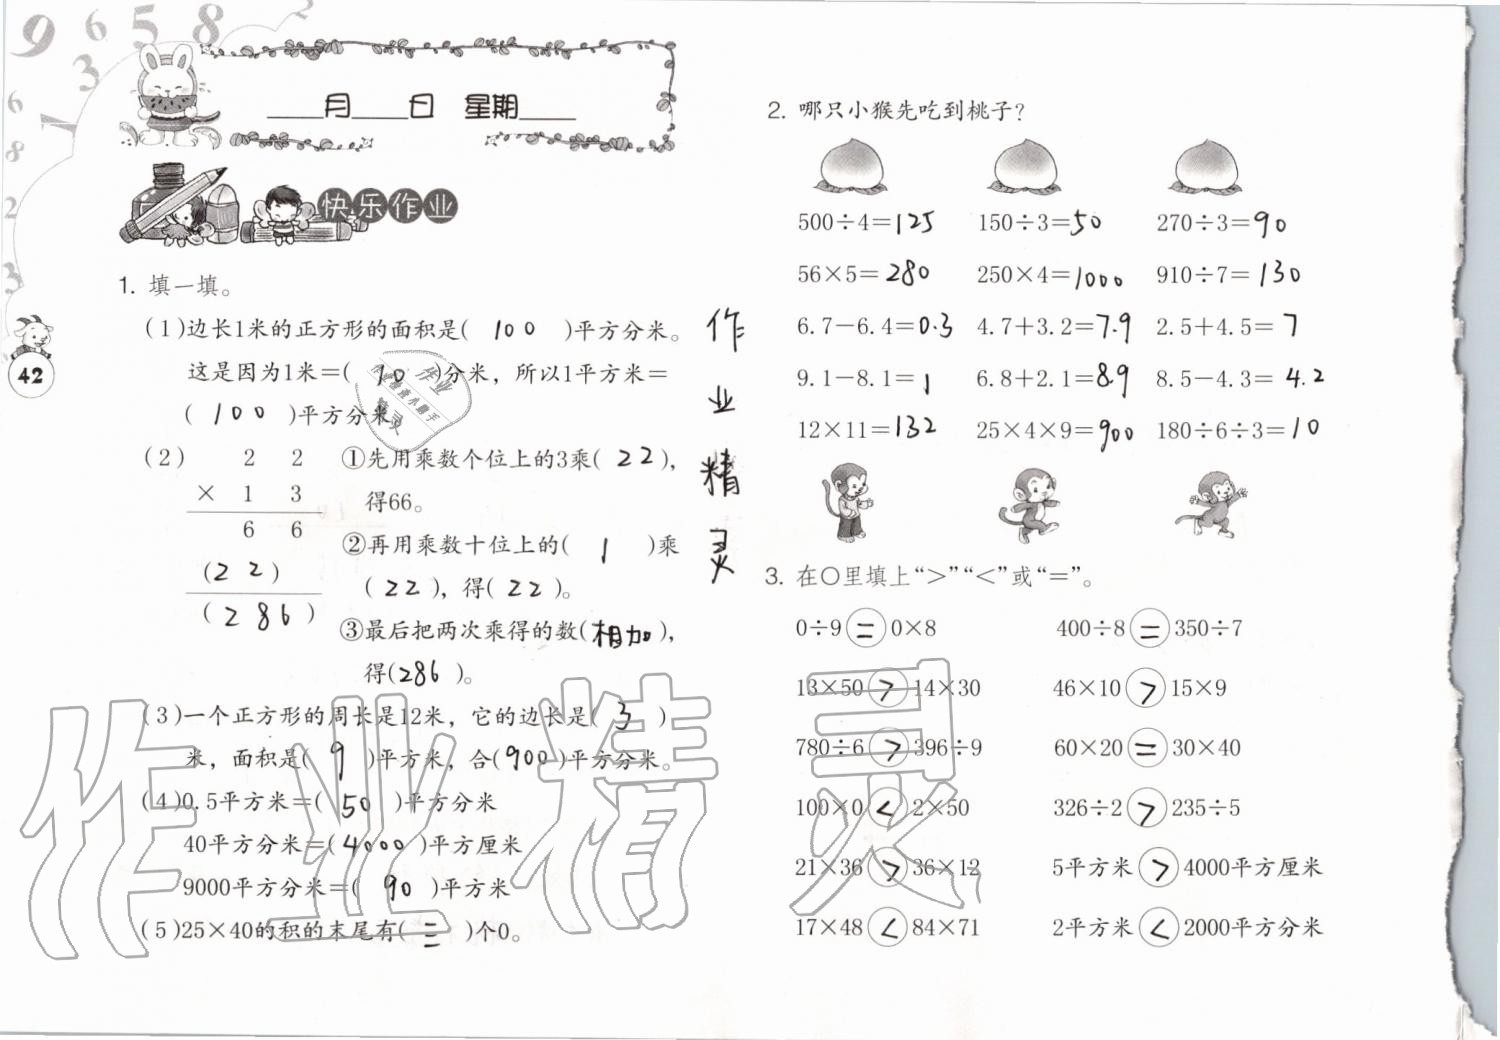 9 6 5 8 2
3
6 1
8
2
3
____月____日 星期____
快乐作业
42
1. 填一填。
(1)边长1米的正方形的面积是( 100 )平方分米。
这是因为1米=( 10 )分米，所以1平方米=
( 100 )平方分米
(2) 2 2
× 1 3
6 6
(2 2)
(2 8 6)
①先用乘数个位上的3乘( 22 ),
得66。
②再用乘数十位上的( 1 )乘
( 22 )，得( 22 )。
③最后把两次乘得的数(相加),
得(286 )。
(3)一个正方形的周长是12米，它的边长是( 3 )
米，面积是( 9 )平方米，合(900)平方分米。
(4)0.5平方米=( 50 )平方分米
40平方分米=(4000 )平方厘米
9000平方分米=( 90 )平方米
(5)25×40的积的末尾有( 三 )个0。
作
业
精
灵
作业精灵
2. 哪只小猴先吃到桃子？
500÷4=125 150÷3=50 270÷3=90
56×5=280 250×4=1000 910÷7=130
6.7−6.4=0.3 4.7+3.2=7.9 2.5+4.5=7
9.1−8.1=1 6.8+2.1=8.9 8.5−4.3=4.2
12×11=132 25×4×9=900 180÷6÷3=10
3. 在○里填上“>”“<”或“=”。
0÷9=0×8 400÷8=350÷7
13×50>14×30 46×10>15×9
780÷6>396÷9 60×20=30×40
100×0<2×50 326÷2>235÷5
21×36>36×12 5平方米>4000平方厘米
17×48<84×71 2平方米<2000平方分米
作业精灵